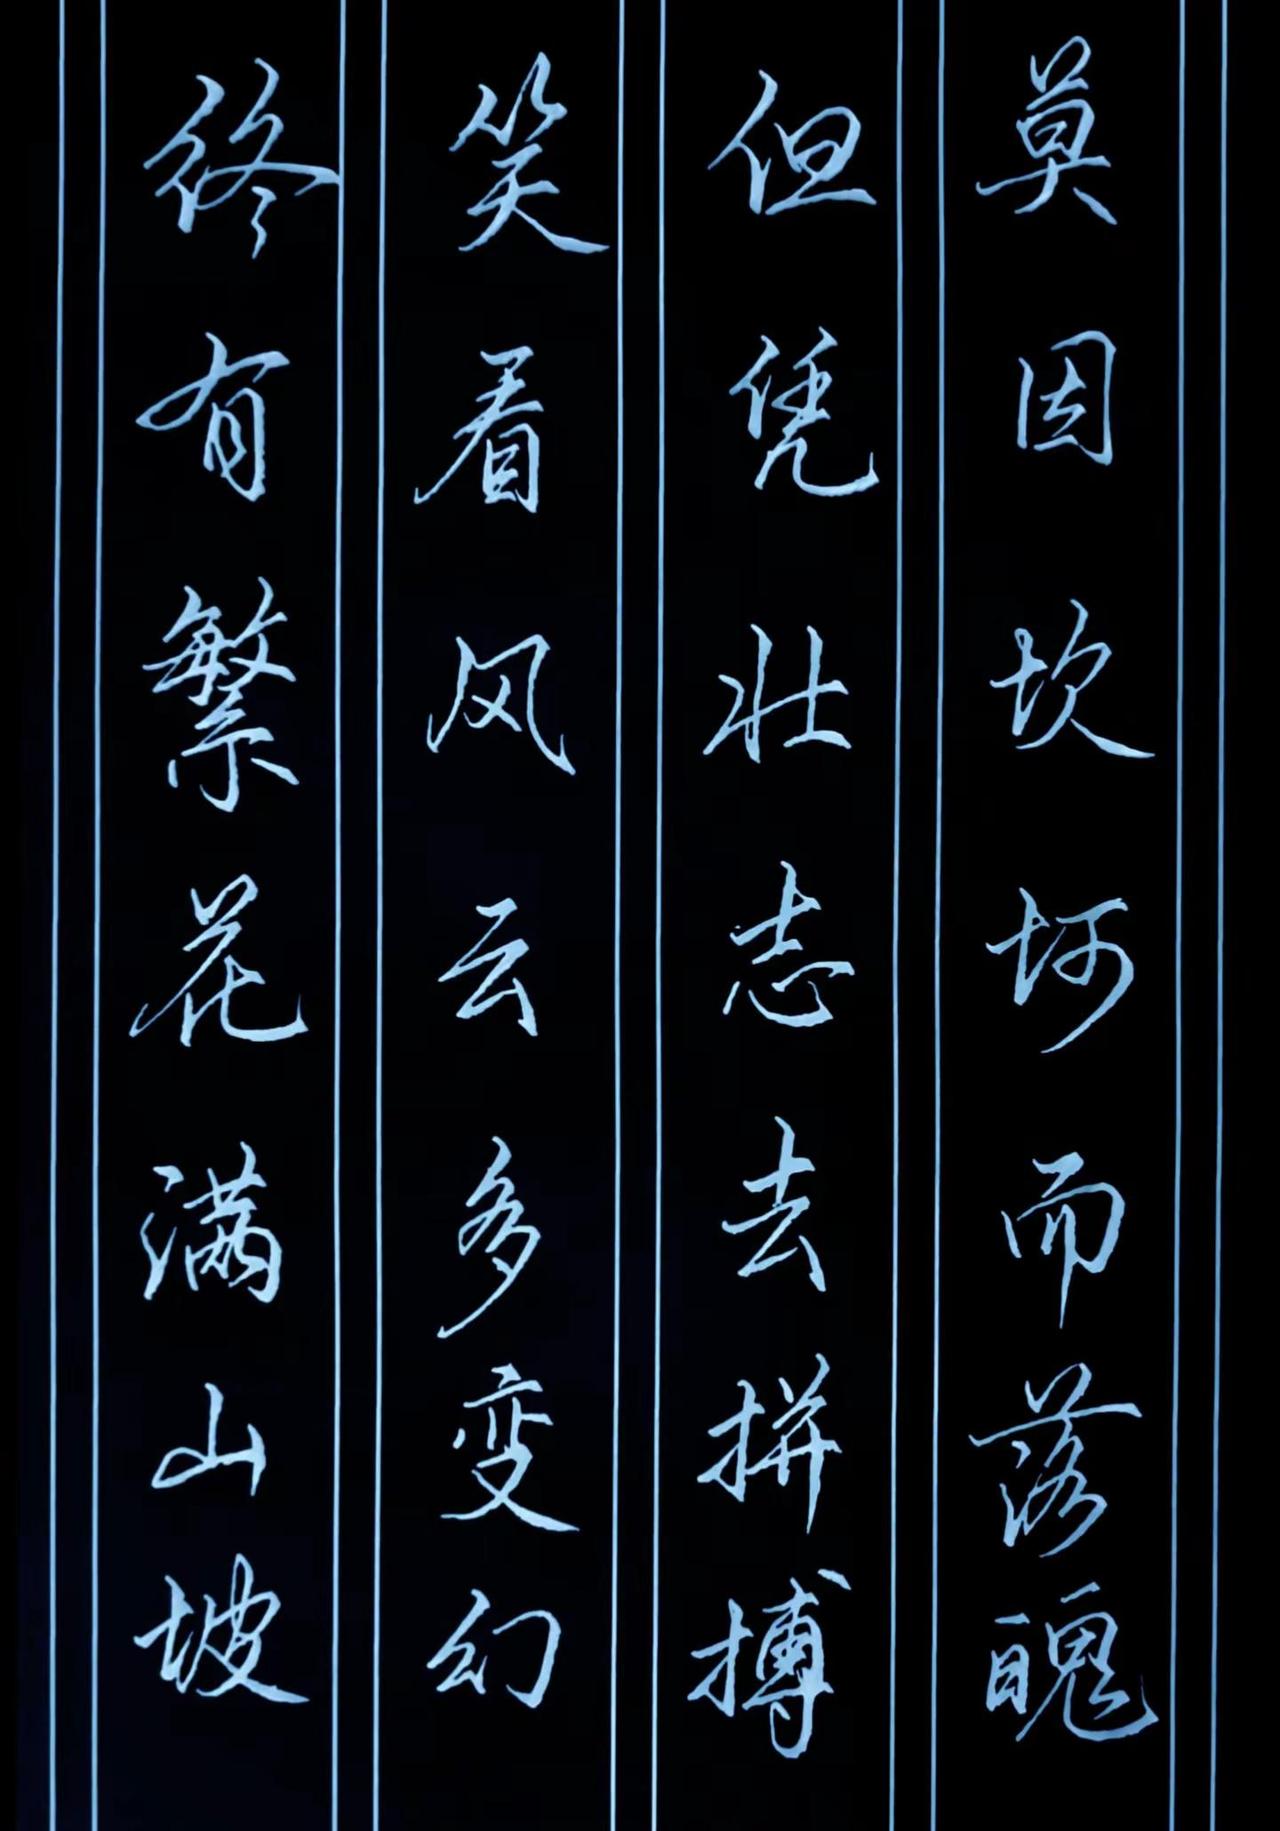 莫因坎坷而落魄
但凭壮志去拼搏
笑看风云多变幻
终有繁花满山坡